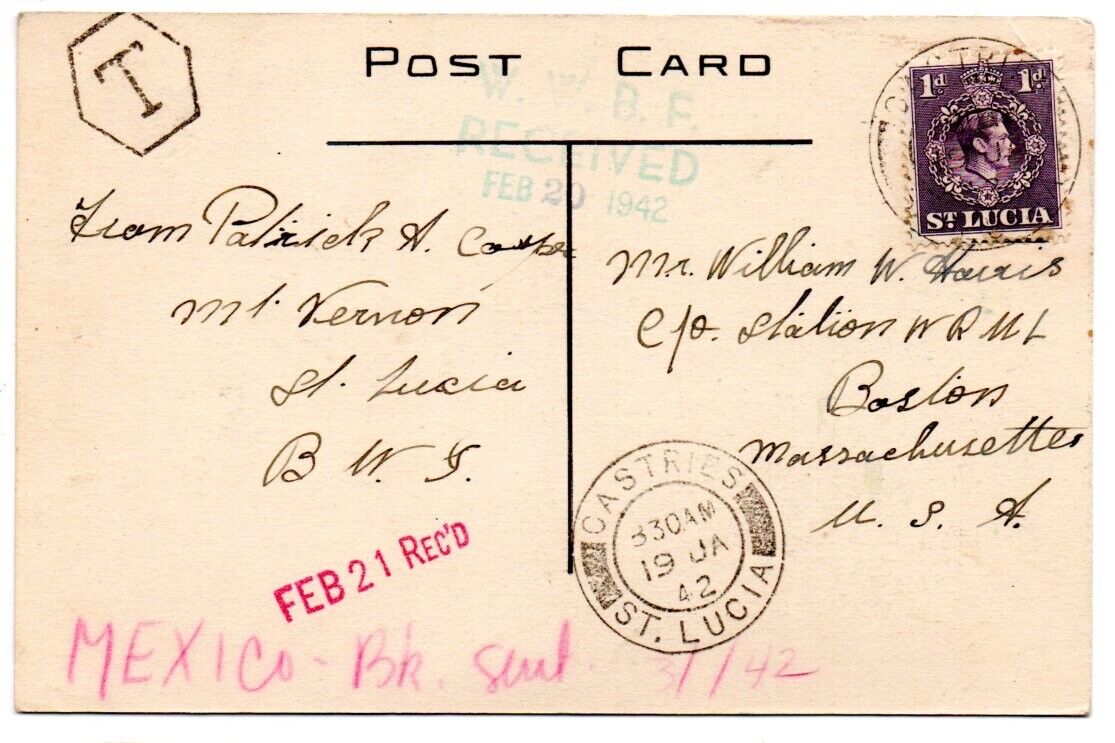 T
POST CARD
W. W. B. F.
RECEIVED
FEB 20 1942
CASTRIES
1d 1d
ST. LUCIA
From Patrick A. Cooper
Mt Vernon
St. Lucia
B W I.
Mr. William W. Harris
C/o. Station W R U L
Boston
Massachusettes
U. S. A.
CASTRIES
830AM
19 JA
42
ST. LUCIA
FEB 21 REC'D
MEXICO - Bk. sent. 3/1/42